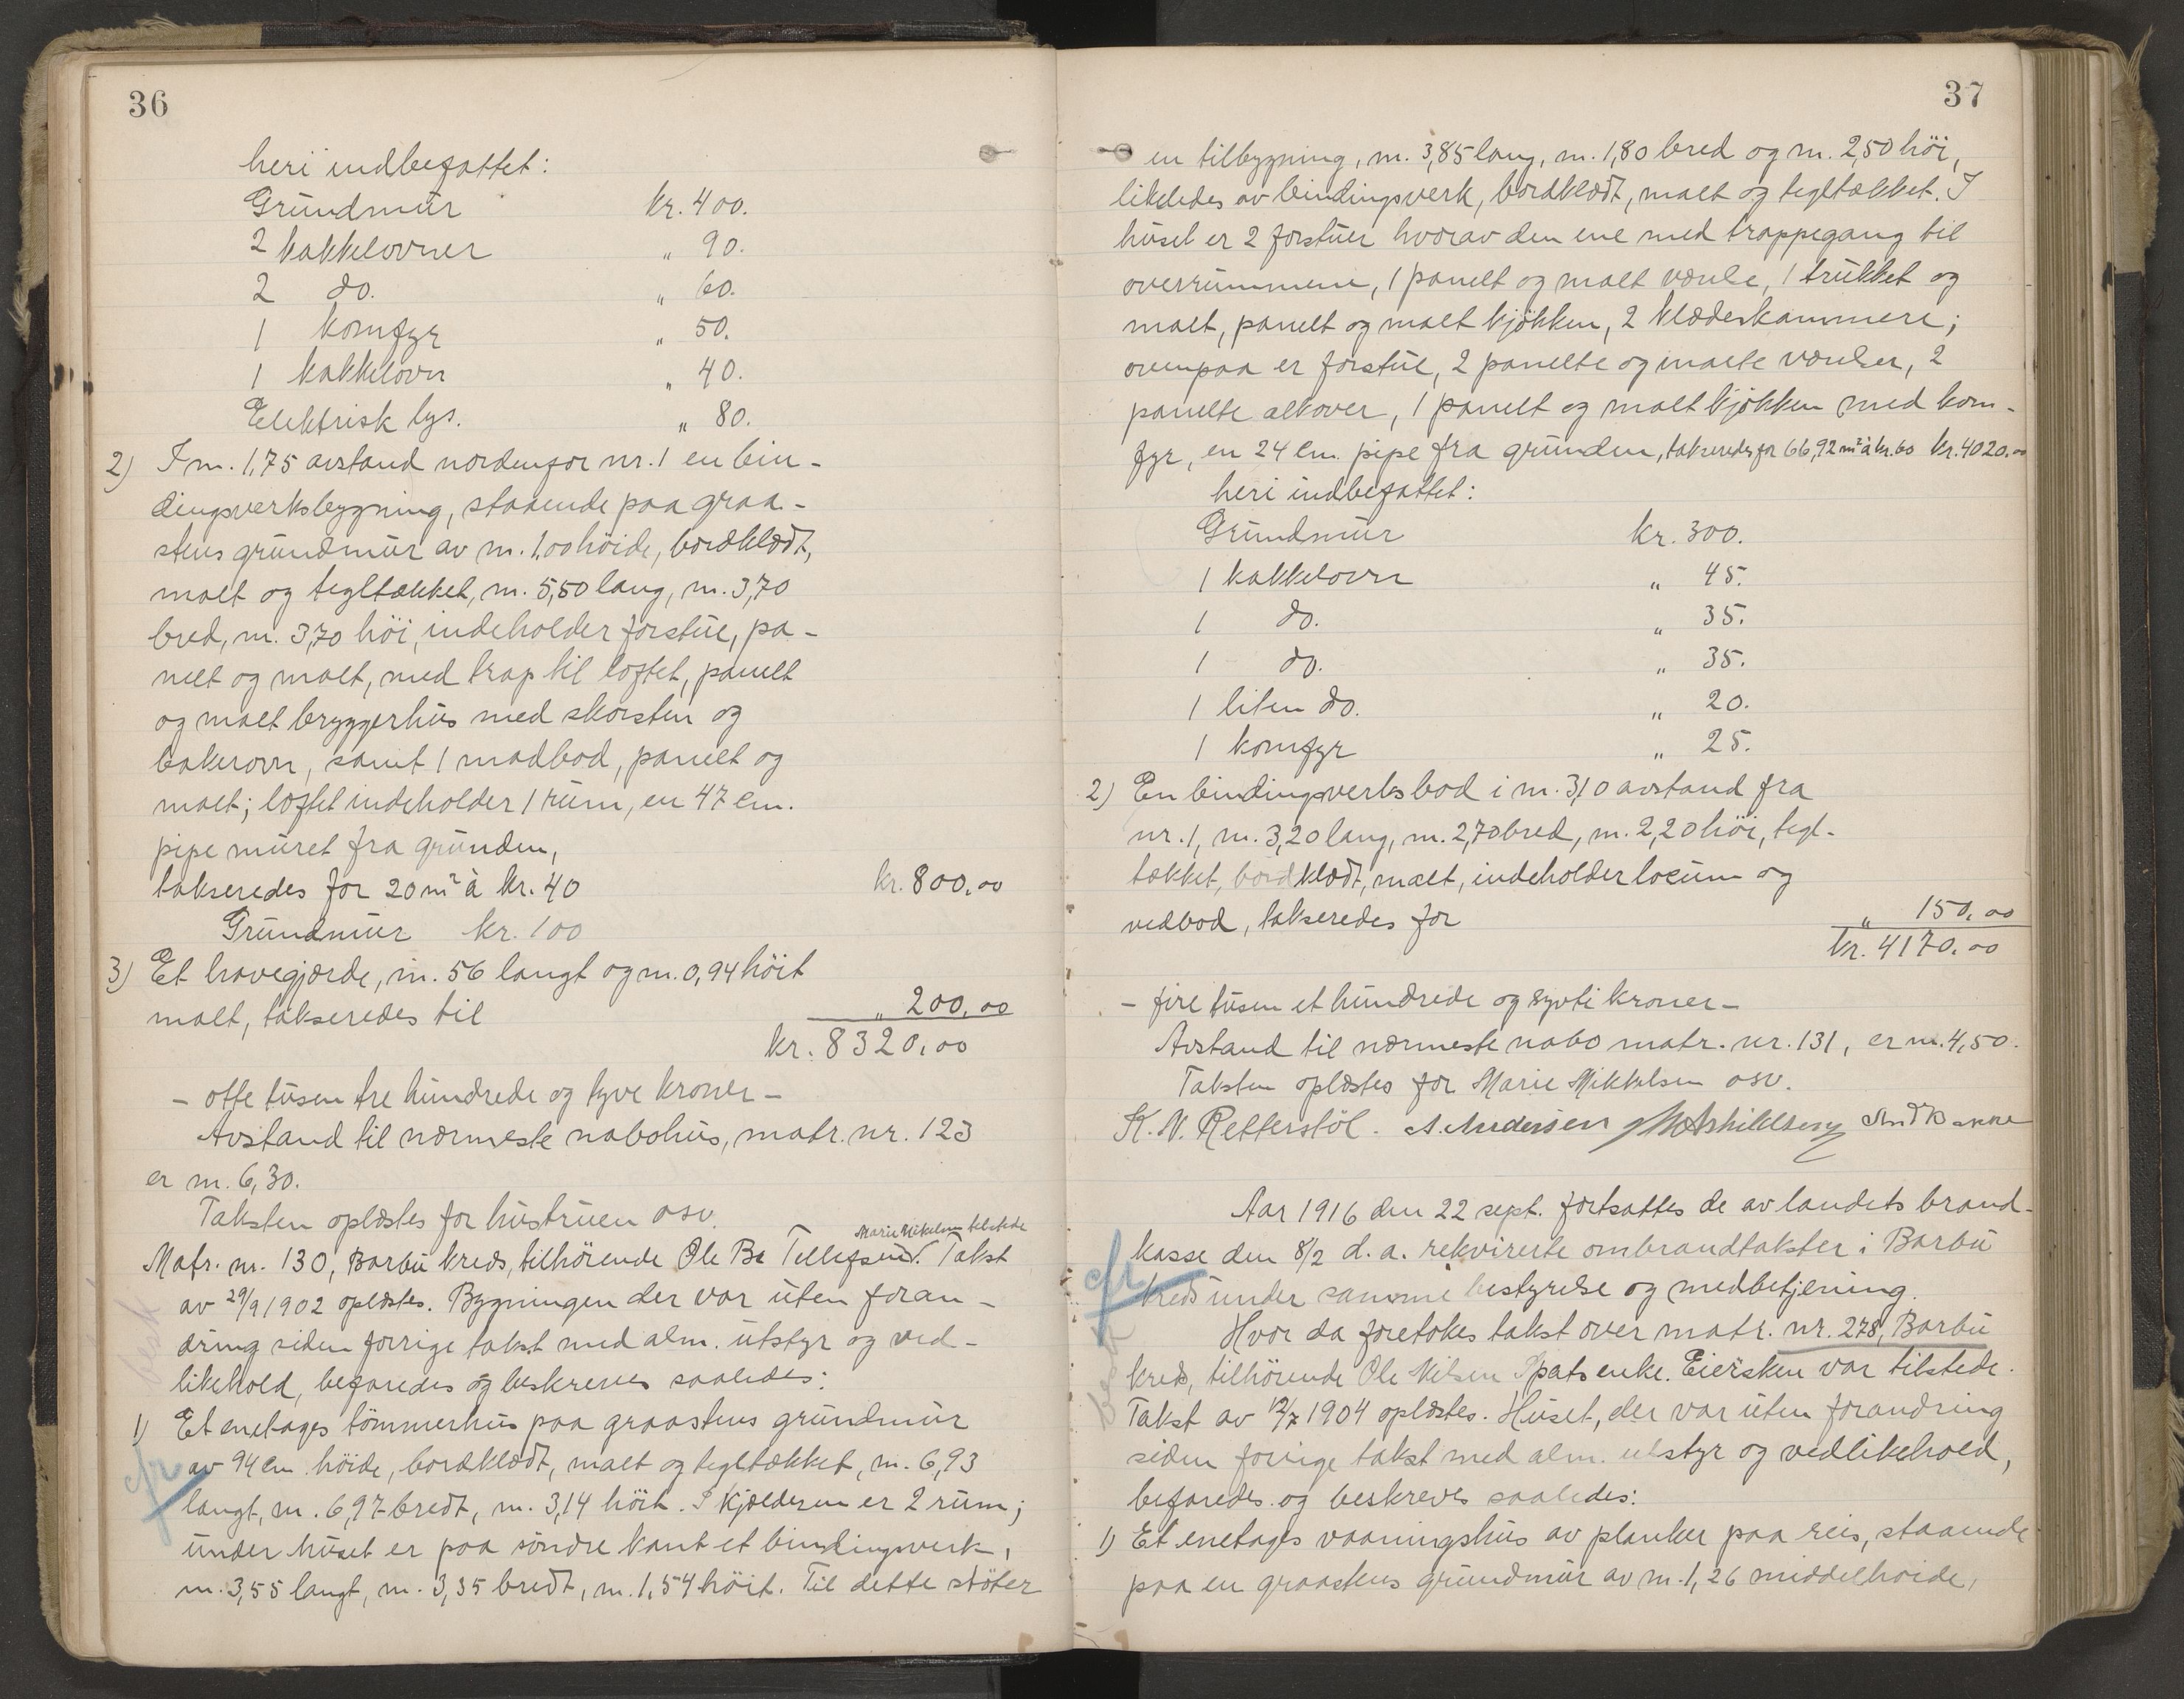 36
heri indbefattet:
Grundmur kr. 400.
2 kakkelovner " 90.
2 do. " 60.
1 komfyr " 50.
1 kakkelovn " 40.
Elektrisk lys. " 80.
2) I m. 1,75 avstand nordenfor nr. 1 en bin-
dingsverksbygning, staaende paa graa-
stens grundmur av m. 1,00 höide, bordklædt,
malt og tegltækket, m. 5,50 lang, m. 3,70
bred, m. 3,70 höi, indeholder forstue, pa-
nelt og malt, med trap til loftet, panelt
og malt bryggerhus med skorsten og
bakerovn, samt 1 madbod, panelt og
malt; loftet indeholder 1 rum, en 47 cm.
pipe muret fra grunden,
takseredes for 20 m² à kr. 40 kr. 800,00
Grundmur kr. 100
3) Et havegjærde, m. 56 langt og m. 0,94 höit
malt, takseredes til " 200,00
kr. 8320,00
- otte tusen tre hundrede og tyve kroner -
Avstand til nærmeste nabohus, matr. nr. 123
er m. 6,30.
Taksten oplæstes for hustruen osv.
Marie Mikelsen tilstede
Matr. nr. 130, Barbu kreds, tilhörende Ole Be Tellefsen. Takst
av 29/9 1902 oplæstes. Bygningen der var uten foran-
dring siden forrige takst med alm. utstyr og ved-
likehold, befaredes og beskreves saaledes:
1) Et enetages tömmerhus paa graastens grundmur
av 94 cm. höide, bordklædt, malt og tegltækket, m. 6,93
langt, m. 6,97 bredt, m. 3,14 höit. I kjælderen er 2 rum;
under huset er paa söndre kant et bindingsverk,
m. 3,55 langt, m. 3,35 bredt, m. 1,54 höit. Til dette stöter
37
en tilbygning, m. 3,85 lang, m. 1,80 bred og m. 2,50 höi,
likeledes av bindingsverk, bordklædt, malt og tegltækket. I
huset er 2 forstuer hvorav den ene med trappegang til
overrummene, 1 panelt og malt værelse, 1 trukket og
malt, panelt og malt kjökken, 2 klædeskammere;
ovenpaa er forstue, 2 panelte og malte værelser, 2
panelte alkover, 1 panelt og malt kjökken med kom-
fyr, en 24 cm. pipe fra grunden, takseredes for 66,92 m² à kr. 60 kr. 4020.00
heri indbefattet:
Grundmur kr. 300.
1 kakkelovn " 45.
1 do. " 35.
1 do. " 35.
1 liten do. " 20.
1 komfyr " 25.
2) En bindingsverksbod i m. 3,10 avstand fra
nr. 1, m. 3,20 lang, m. 2,70 bred, m. 2,20 höi, tegl-
tækket, bordklædt, malt, indeholder locum og
vedbod, takseredes for " 150,00
kr. 4170.00
- fire tusen et hundrede og sytti kroner -
Avstand til nærmeste nabo matr. nr. 131, er m. 4,50.
Taksten oplæstes for Marie Mikkelsen osv.
K. N. Retterstöl. A. Andersen
Aar 1916 den 22 sept. fortsattes de av landets brand-
kasse den 8/2 d. a. rekvirerte ombrandtakster i Barbu
kreds under samme bestyrelse og medbetjening.
Hvor da foretokes takst over matr. nr. 278, Barbu
kreds, tilhörende Ole Nilsen Spats enke. Eiersken var tilstede.
Takst av 12/7 1904 oplæstes. Huset, der var uten forandring
siden forrige takst med alm. utstyr og vedlikehold,
befaredes og beskreves saaledes:
1) Et enetages vaaningshus av planker paa reis, staaende
paa en graastens grundmur av m. 1,26 middelhöide,